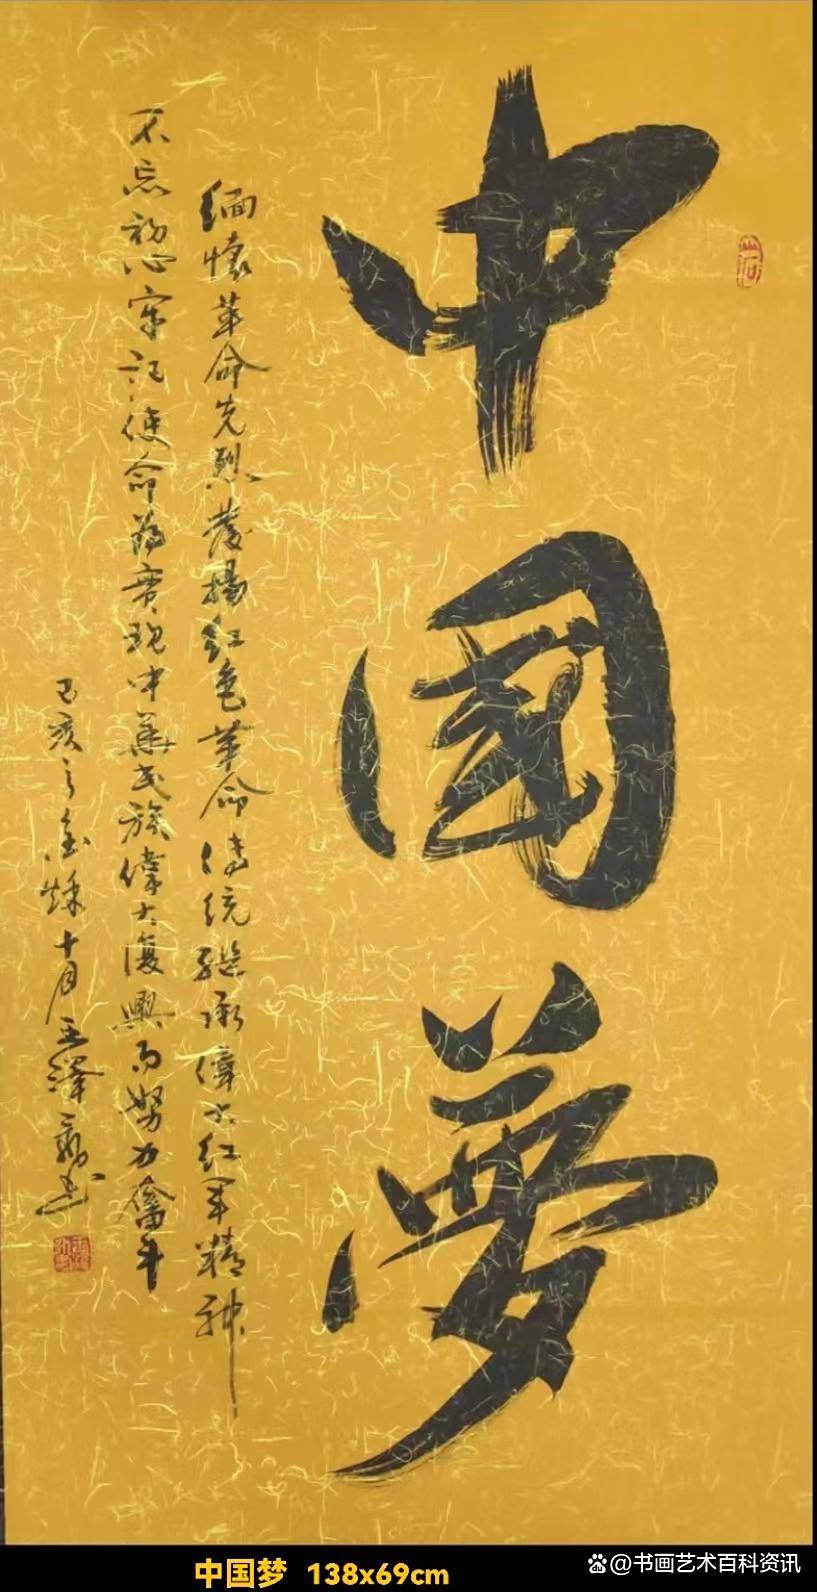 中國夢
缅懷革命先烈發揚红色革命传统继承偉大红军精神
不忘初心牢记使命為實现中華民族偉大復興而努力奮斗
己亥之金秋十月王澤勇书
中国梦 138x69cm
@书画艺术百科资讯